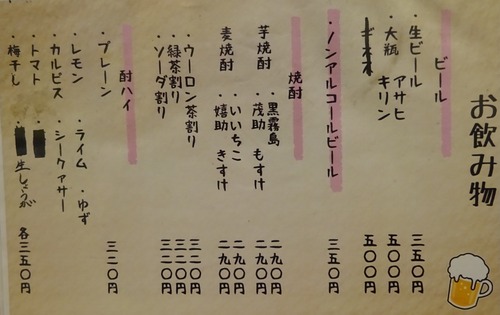 お飲み物
ビール
・生ビール 三五〇円
・大瓶 アサヒ 五〇〇円
キリン 五〇〇円
・ノンアルコールビール 三五〇円
焼酎
芋焼酎 ・黒霧島 二九〇円
・茂助 もすけ 二九〇円
麦焼酎 ・いいちこ 二九〇円
・嬉助 きすけ 二九〇円
・ウーロン茶割り 三二〇円
・緑茶割り 三二〇円
・ソーダ割り 三二〇円
酎ハイ
・プレーン 三二〇円
・レモン ・ライム ・ゆず
・カルピス ・シークァサー
・トマト
・梅干し 生しょうが 各三五〇円